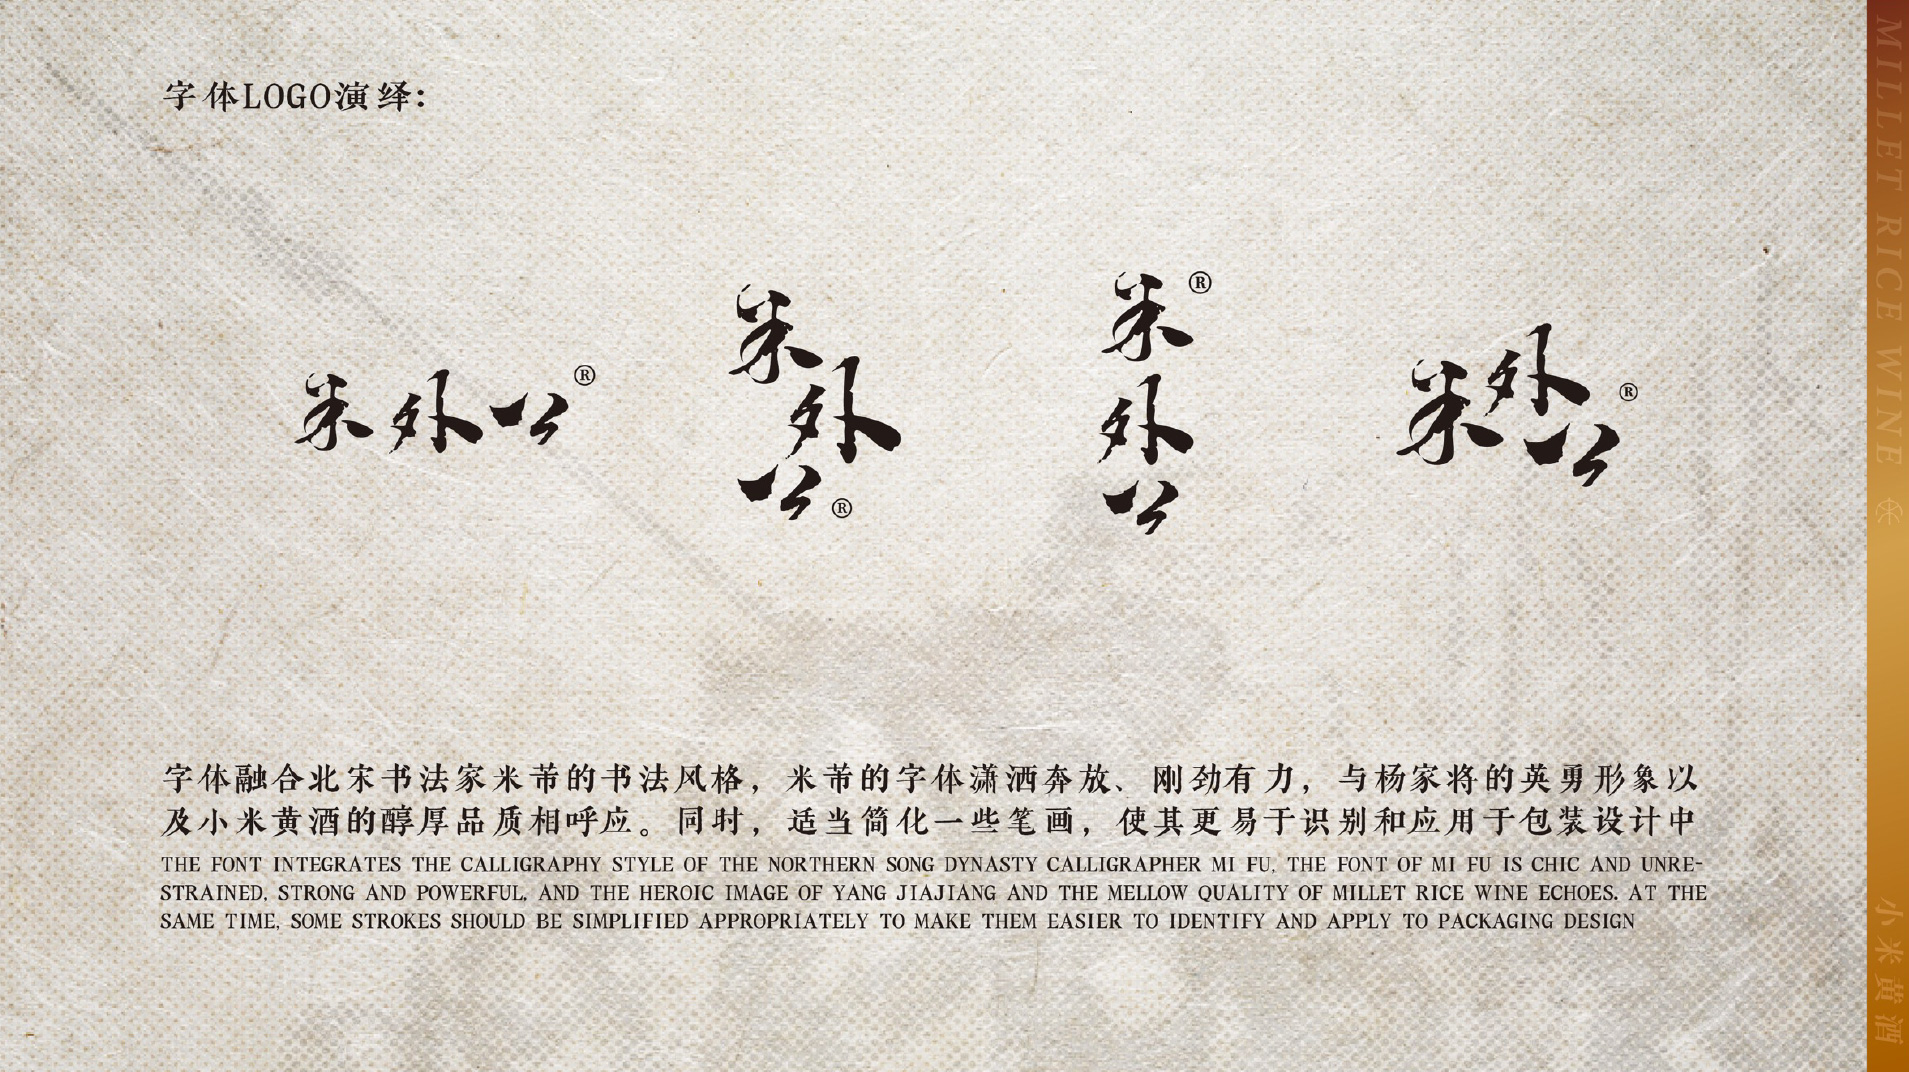 字体LOGO演绎:
米外公®
米外公®
米外公®
米外公®
字体融合北宋书法家米芾的书法风格，米芾的字体潇洒奔放、刚劲有力，与杨家将的英勇形象以
及小米黄酒的醇厚品质相呼应。同时，适当简化一些笔画，使其更易于识别和应用于包装设计中
THE FONT INTEGRATES THE CALLIGRAPHY STYLE OF THE NORTHERN SONG DYNASTY CALLIGRAPHER MI FU, THE FONT OF MI FU IS CHIC AND UNRE-
STRAINED, STRONG AND POWERFUL, AND THE HEROIC IMAGE OF YANG JIAJIANG AND THE MELLOW QUALITY OF MILLET RICE WINE ECHOES. AT THE
SAME TIME, SOME STROKES SHOULD BE SIMPLIFIED APPROPRIATELY TO MAKE THEM EASIER TO IDENTIFY AND APPLY TO PACKAGING DESIGN
MILLET RICE WINE
小米黄酒